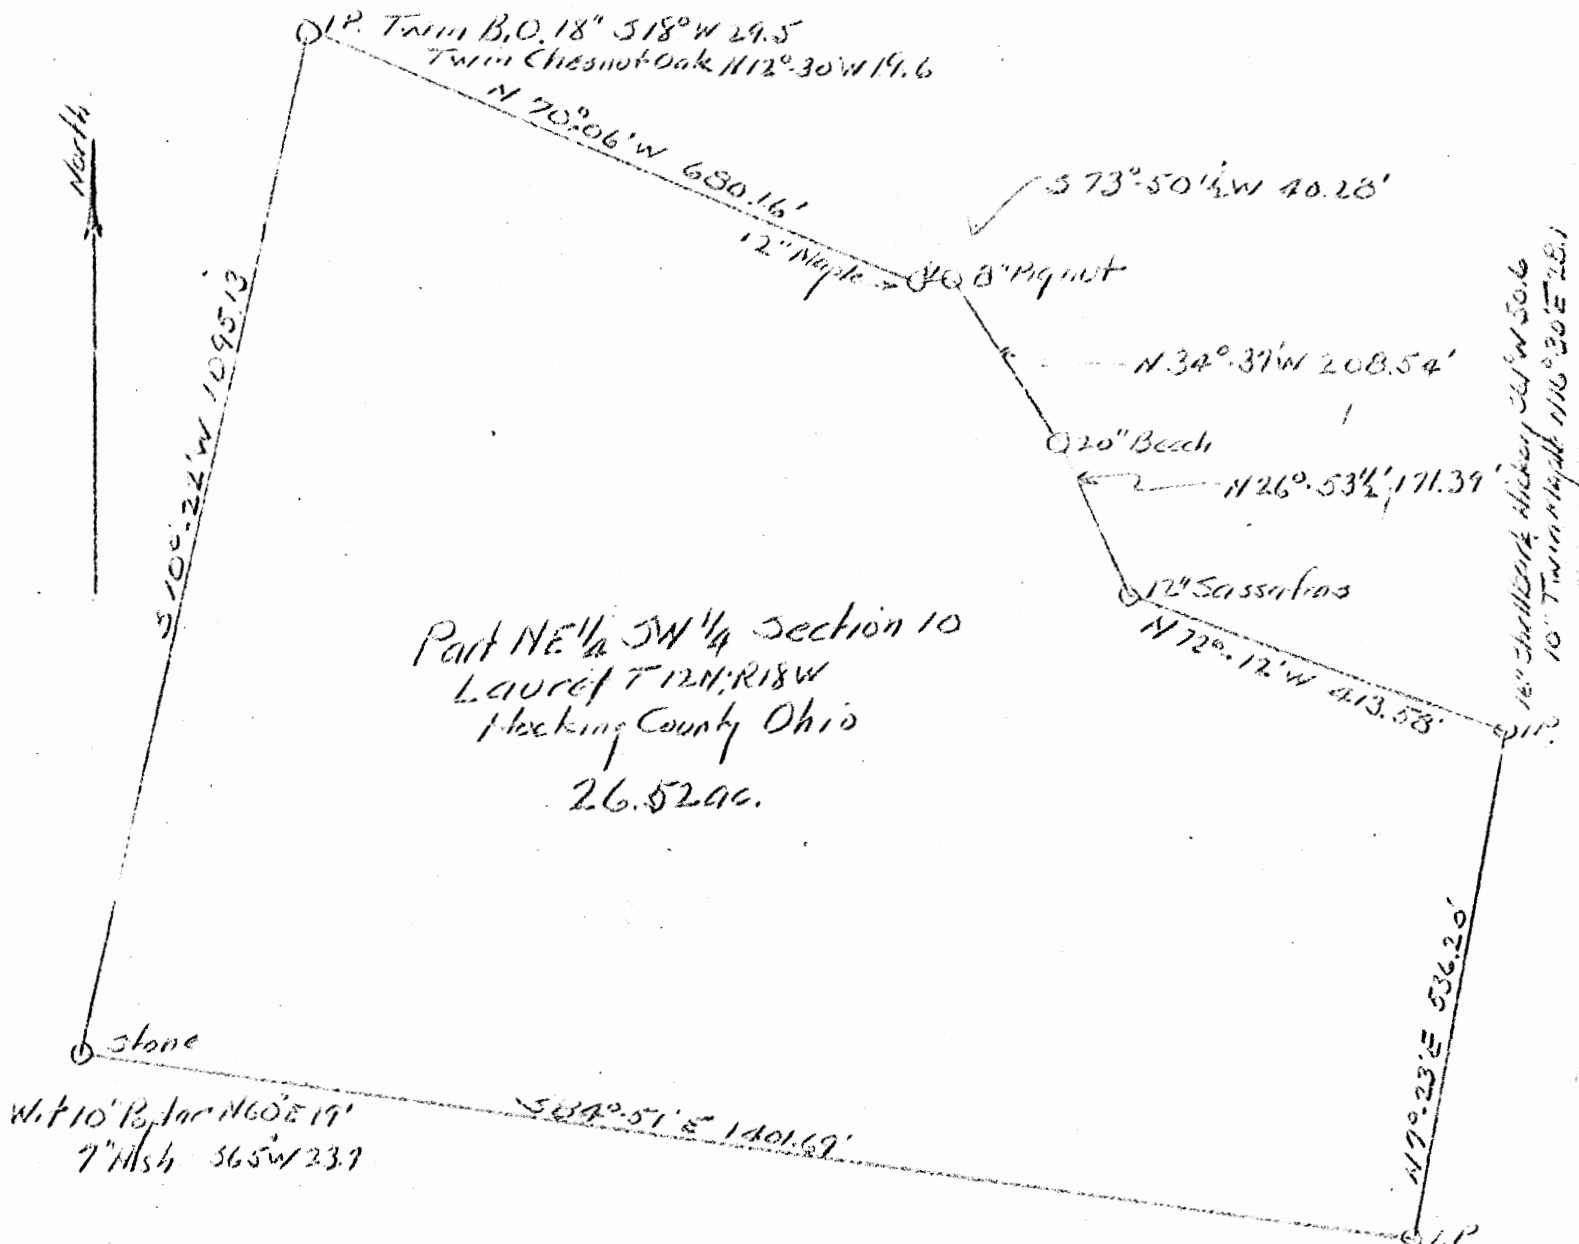 I.P. Twin B.O. 18" S18°W 29.5
Twin Chesnut Oak N12°-30'W 19.6
North
N 70°-06'W 680.16'
S 73°-50'½W 40.28'
12" Maple
8" Pignut
N 34°-37'W 208.54'
20" Beech
N 26°-53½' 171.39'
12" Sassafras
N 72°-12'W 413.58'
16" Shellbark Hickory W 50.6
10" Twin Maple N16°30'E 28.1
I.P.
S 10°-22'W 1095.13'
Part NE 1/4 SW 1/4 Section 10
Laurel T12N; R18W
Hocking County Ohio
26.52 ac.
N 7°-23'E 536.20'
stone
Wit 10" Poplar N60°E 19'
7" Ash S65°W 23.7
S 84°-51'E 1401.69'
I.P.